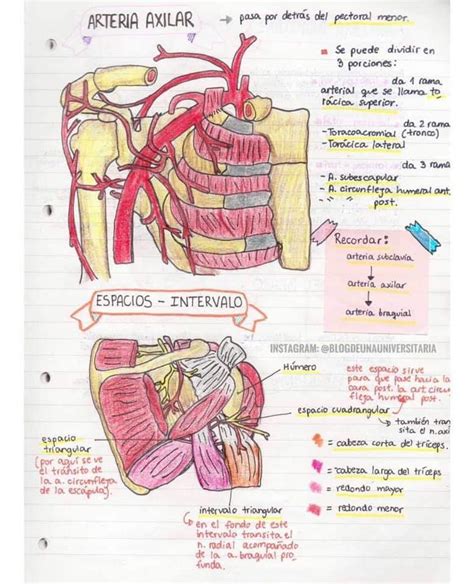 ARTERIA AXILAR
→ pasa por detrás del pectoral menor.
Se puede dividir en
3 porciones:
da 1 rama
arterial que se llama to
rácica superior.
da 2 rama
-Toracoacromial (tronco)
-Torácica lateral
da 3 rama
- A. subescapular
- A. circunfleja humeral ant.
post.
Recordar:
arteria subclavia
arteria axilar
arteria braquial
ESPACIOS - INTERVALO
INSTAGRAM: @BLOGDEUNAUNIVERSITARIA
Húmero
este espacio sirve
para que pase hacia la
para post. la art. circun
fleja humeral post.
espacio cuadrangular
también tran
sita el n. axi
espacio
triangular
(por aquí se ve
el tránsito de
la a. circunfleja
de la escápula).
= cabeza corta del tríceps.
= cabeza larga del tríceps
= redondo mayor
= redondo menor
intervalo triangular
en el fondo de este
intervalo transita el
n. radial acompañado
de la a. braquial pro
funda.